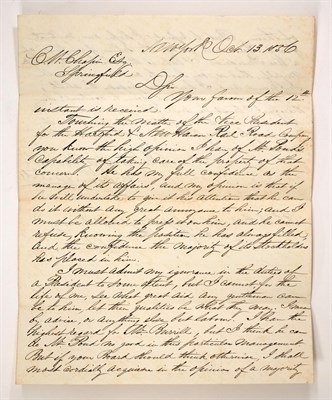 New York Oct 13. 1856
C. W. Chapin Esq
Springfield
D Sir
Your favor of the 12th
instant is received.
Touching the matter of the Vice President
for the Hartford & New Haven Rail Road Company
you know the high opinion I have of Mr
Capability of taking care of the property of that
concern. He has my full confidence as the
manager of its affairs, and my opinion is that if
he will undertake to give it his attention that he can
do it without any great annoyance to him, and I
must be allowed to press upon him, and he cannot
refuse, knowing the position he has always filled
And the confidence the majority of its Stockholders
has placed in him.
I must admit my ignorance in the duties
of a President to some extent, but I cannot for the
life of me, see what great aid any gentleman can
be to him, let their qualities be what they may, I mean
by advice, or any thing else but labour. I have the
highest regard for Mr. but I think he can
be Mr. no good in this particular management
But if your Board should think otherwise, I shall
most cordially acquiesce in the opinion of a majority